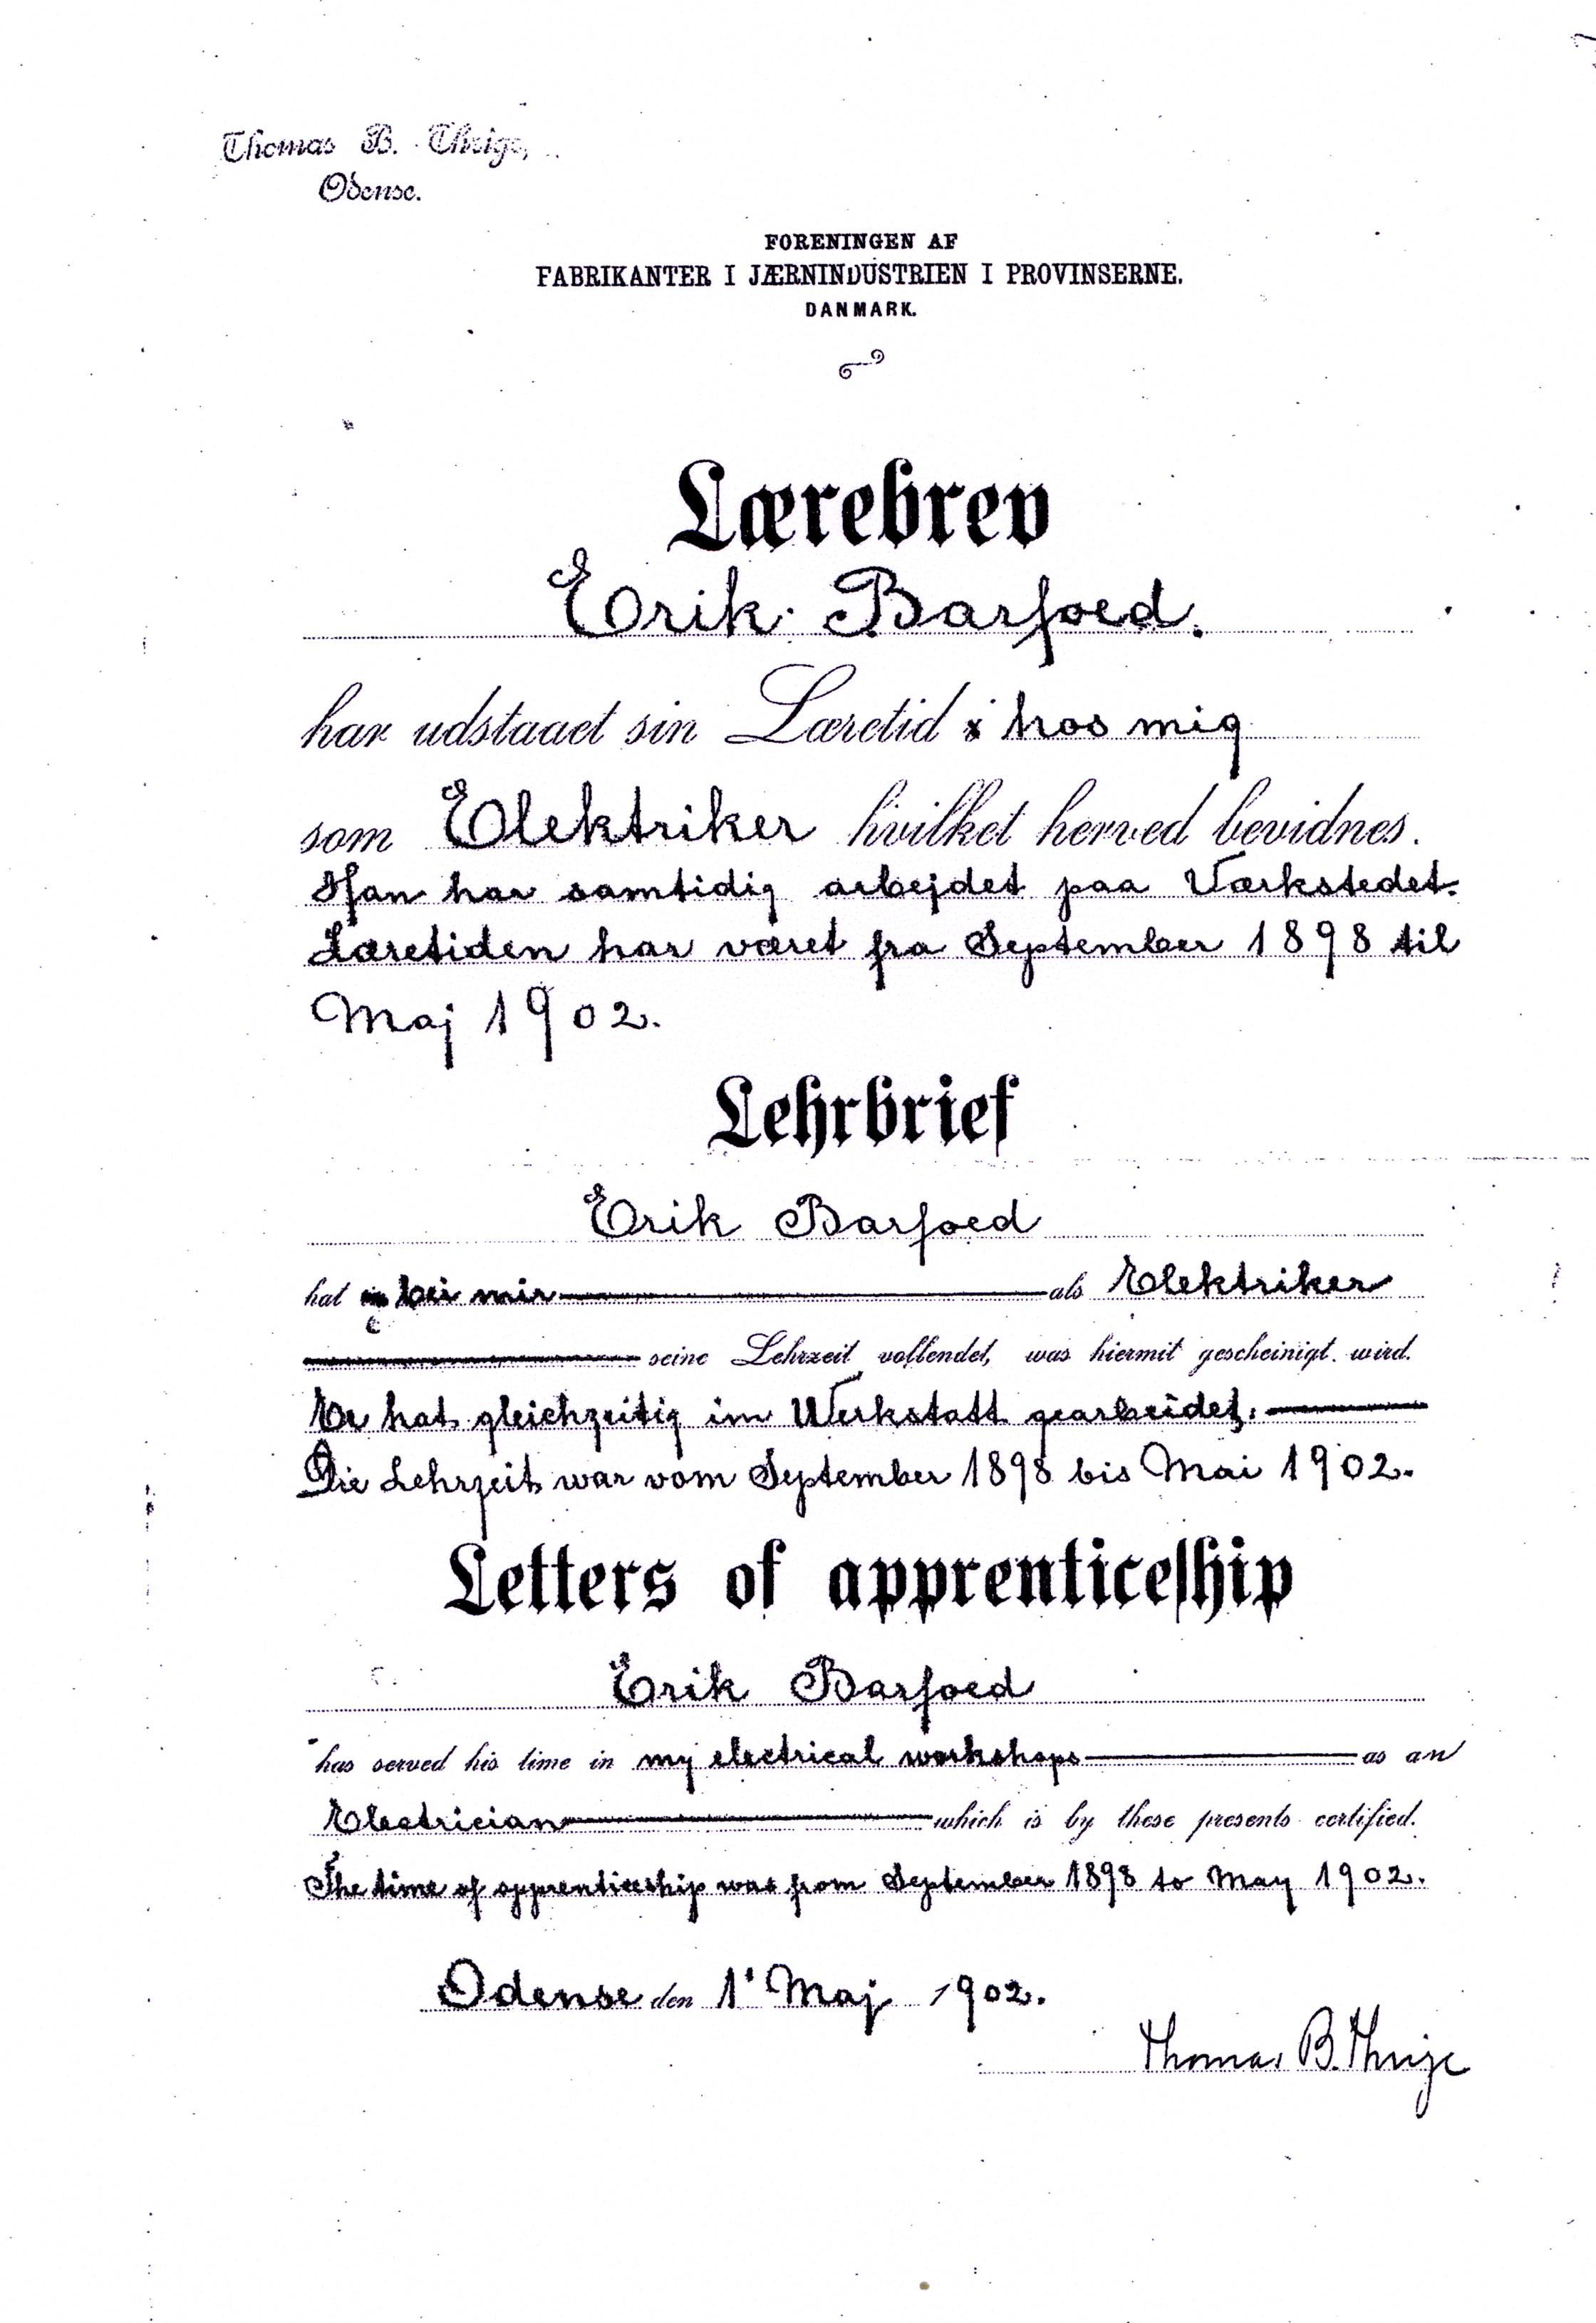 Thomas B. Thrige,
Odense.
FORENINGEN AF
FABRIKANTER I JÆRNINDUSTRIEN I PROVINSERNE.
DANMARK.
Lærebrev
Erik Barfoed.
har udstaaet sin Læretid i hos mig
som Elektriker hvilket herved bevidnes.
Han har samtidig arbejdet paa Værkstedet.
Læretiden har været fra September 1898 til
Maj 1902.
Lehrbrief
Erik Barfoed
hat in bei mir als Elektriker
seine Lehrzeit vollendet, was hiermit gescheinigt wird.
Er hat gleichzeitig im Werkstatt gearbeidet.
Die Lehrzeit war vom September 1898 bis Mai 1902.
Letters of apprenticeship
Erik Barfoed
has served his time in my electrical workshops as an
Electrician which is by these presents certified.
The time of apprenticeship was from September 1898 to May 1902.
Odense den 1' Maj 1902.
Thomas B. Thrige